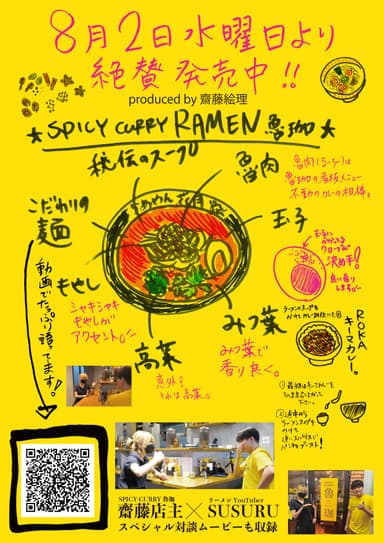 8月2日水曜日より
絶賛発売中!!
produced by 齋藤絵理
★SPICY CURRY RAMEN 魯珈★
秘伝のスープ
魯肉
魯肉(ろーろー)は
魯珈の看板メニュー
不動のカレーの相棒。
こだわりの
麺
らぁめん
玉子
玉子に
かかっている
クローブが
決め手!
もやし
シャキシャキ
もやしが
アクセントに
動画でたっぷり語ってます!
高菜
意外?
それは高菜。
みつ葉
みつ葉で
香り良く。
ROKA
キーマカレー。
SPICY CURRY 魯珈
齋藤店主
×
ラーメンYouTuber
SUSURU
スペシャル対談ムービーも収録
魯珈